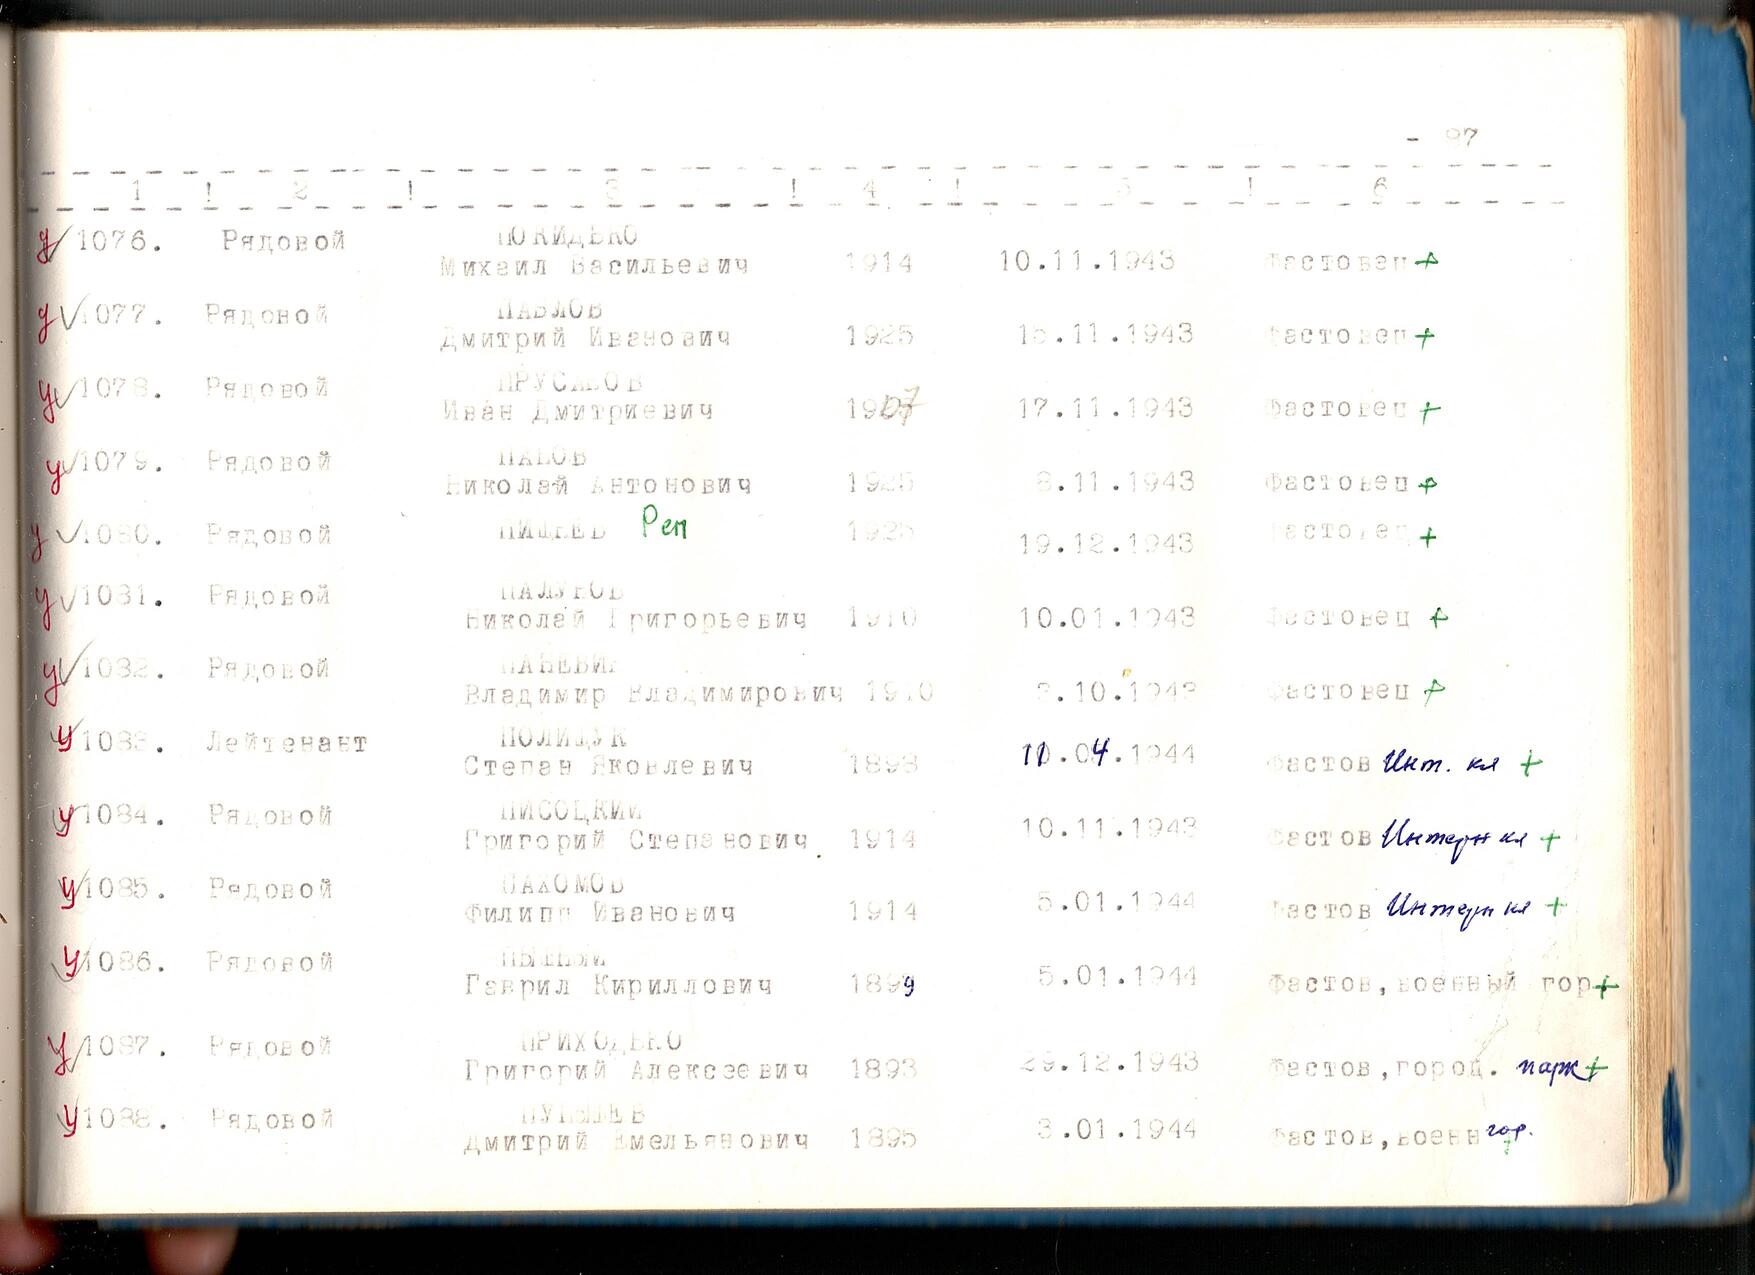 - 97
1 ! 2 ! 3 ! 4 ! 5 ! 6
у 1076. Рядовой ПОКИДЬКО
Михаил Васильевич 1914 10.11.1943 Фастовец +
у 1077. Рядоной ПАВЛОВ
Дмитрий Иванович 1925 15.11.1943 Фастовец +
у 1078. Рядовой ПРУСАКОВ
Иван Дмитриевич 1907 17.11.1943 Фастовец +
у 1079. Рядовой
Николай Антонович 1925 8.11.1943 Фастовец +
у 1080. Рядовой Реп 1925 19.12.1943 Фастовец +
у 1081. Рядовой
Николай Григорьевич 1910 10.01.1943 Фастовец +
у 1082. Рядовой
Владимир Владимирович 1910 .10.1943 Фастовец +
у 1083. Лейтенант ПОЛИЩУК
Степан Яковлевич 1898 11.04.1944 Фастов Инт. кл +
у 1084. Рядовой ПИСОЦКИЙ
Григорий Степанович 1914 10.11.1943 Фастов Интерн кл +
у 1085. Рядовой ПАХОМОВ
Филипп Иванович 1914 5.01.1944 Фастов Интерн кл +
у 1086. Рядовой
Гаврил Кириллович 1899 5.01.1944 Фастов,военный гор +
у 1087. Рядовой ПРИХОДЬКО
Григорий Алексеевич 1893 29.12.1943 Фастов,город. парк +
у 1088. Рядовой
Дмитрий Емельянович 1895 3.01.1944 Фастов,военн гор.